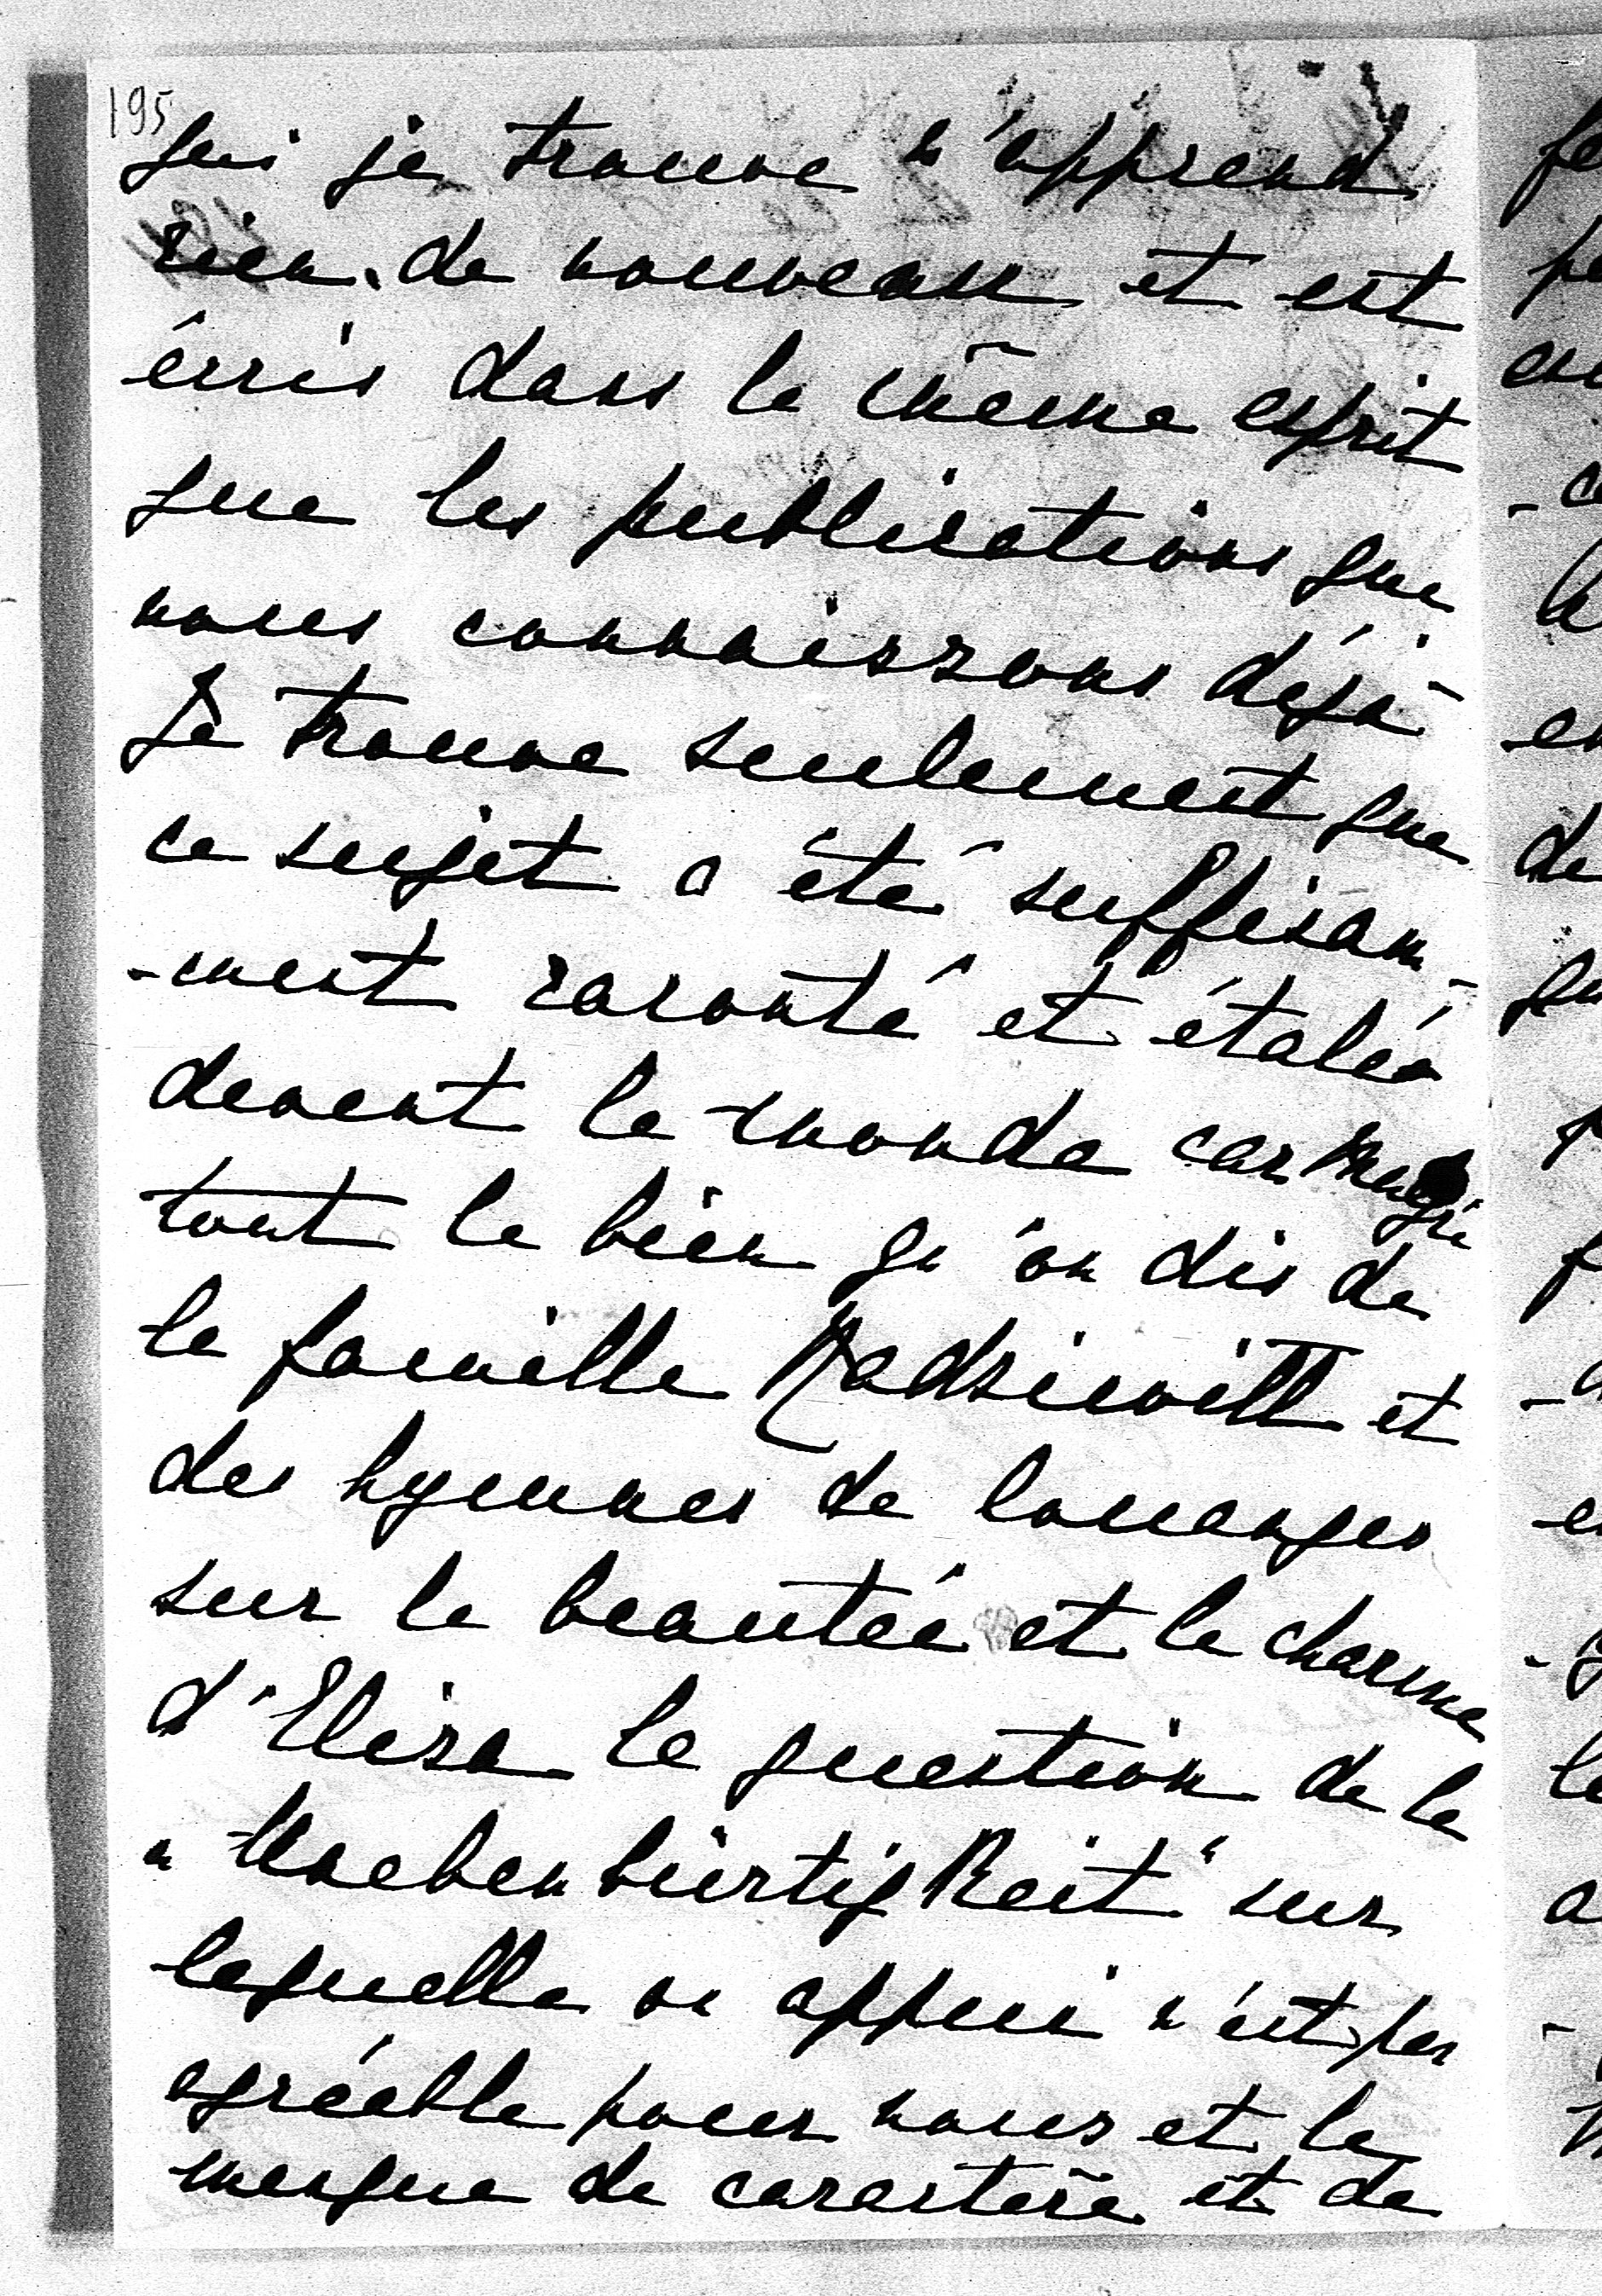 195
qui je trouve n'apprend
rien de nouveau et est
écris dans le même esprit
que les publications que
nous connaissons déjà
Je trouve seulement que
ce sujet a été suffisam-
-ment raconté et étalée
devent le monde car malgré
tout le bien qu'on dis de
la famille Radsiwill et
des hymnes de louanges
sur la beautée et le charme
d'Elisa la question de la
"Unebenbürtigkeit" sur
laquelle on appui n'est pas
agréable pour nous et le
manque de caractère et de